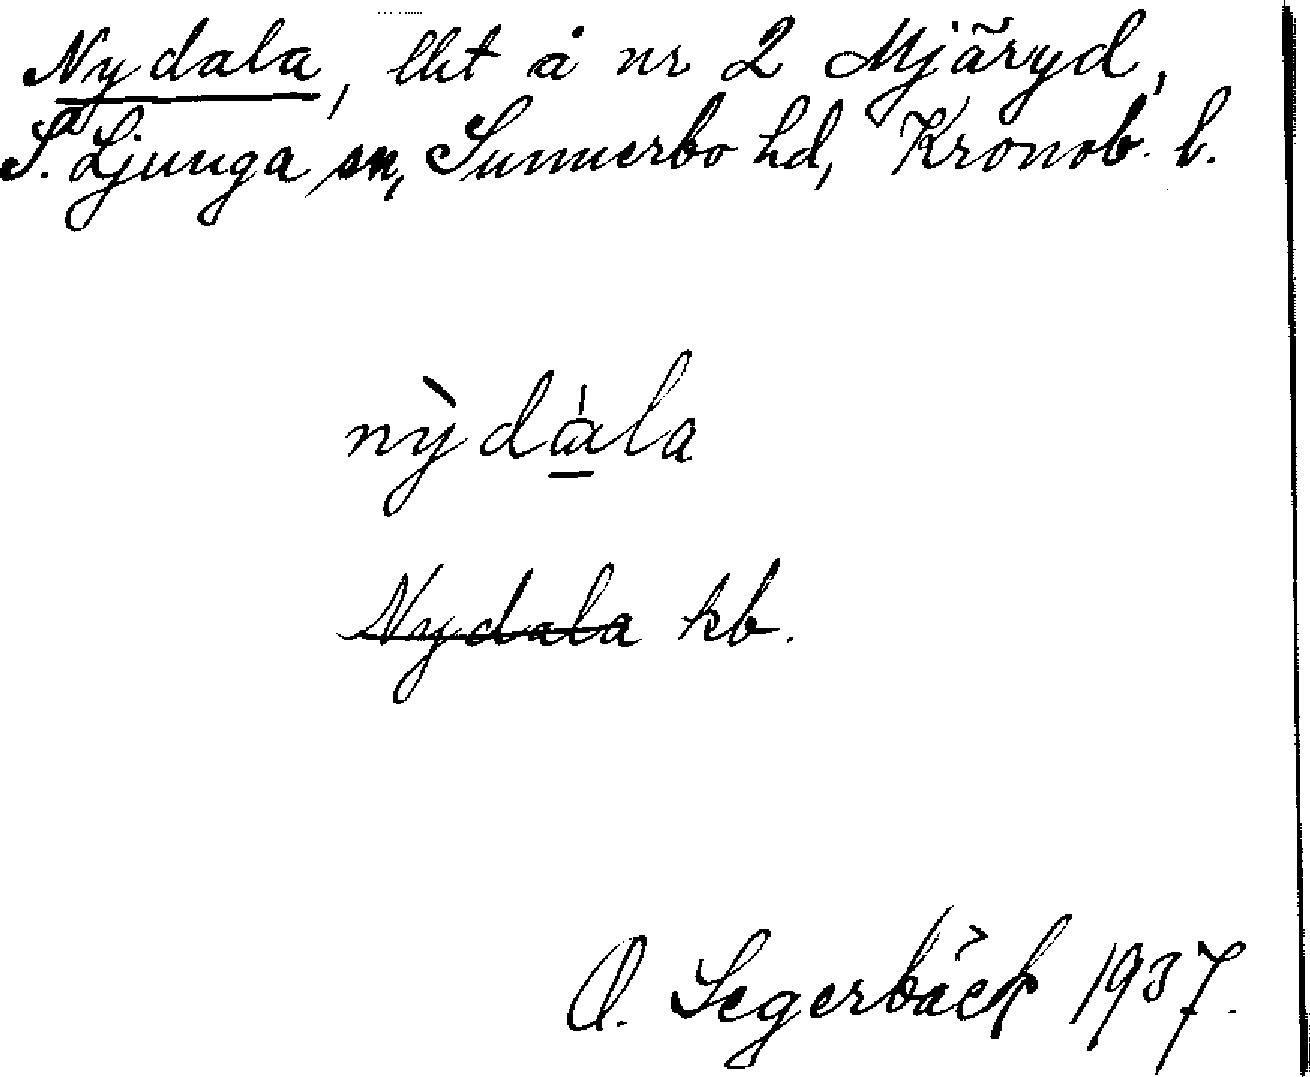 Nydala, lht å nr 2 Mjäryd,
S. Ljunga sn, Sunnerbo hd, Kronob. l.
nỳdàla
Nydala kb.
O. Segerbäck 1937.